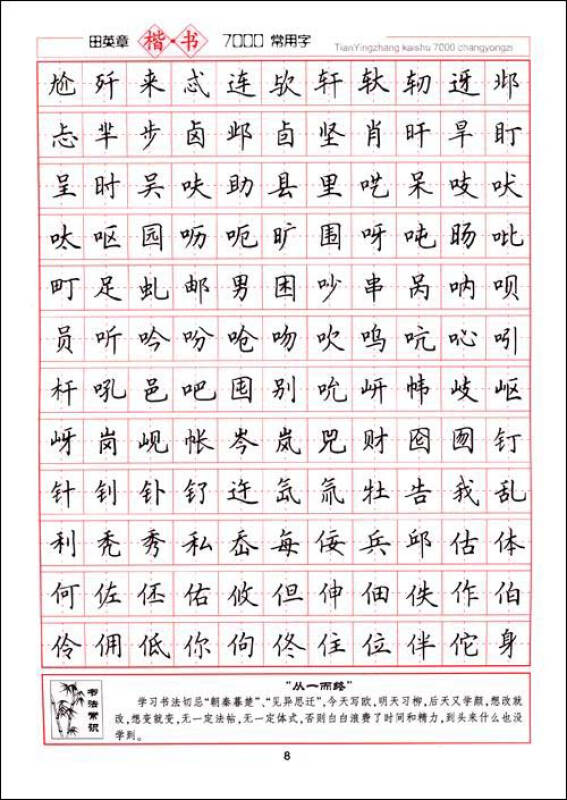 田英章 楷·书 7000 常用字
TianYingzhang kaishu 7000 changyongzi
尬 歼 来 忒 连 欤 轩 轪 轫 迓 邶
忐 芈 步 卤 邺 卣 坚 肖 旰 旱 盯
呈 时 吴 呋 助 县 里 呓 呆 吱 吠
呔 呕 园 呖 呃 旷 围 呀 吨 旸 吡
町 足 虬 邮 男 困 吵 串 呙 呐 呗
员 听 吟 吩 呛 吻 吹 呜 吭 吣 吲
杆 吼 邑 吧 囤 别 吮 岍 帏 岐 岖
岈 岗 岘 帐 岑 岚 兕 财 囵 囫 钉
针 钊 钋 钌 迕 氙 氚 牡 告 我 乱
利 秃 秀 私 岙 每 佞 兵 邱 估 体
何 佐 伾 佑 攸 但 伸 佃 佚 作 伯
伶 佣 低 你 佝 佟 住 位 伴 佗 身
书法常识
“从一而终”
学习书法切忌“朝秦暮楚”、“见异思迁”,今天写欧,明天习柳,后天又学颜,想改就
改,想变就变,无一定法帖,无一定体式,否则白白浪费了时间和精力,到头来什么也没
学到。
8